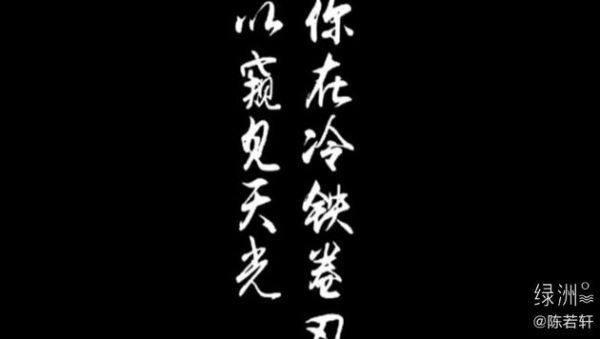 你在冷铁卷刃
以窥见天光
绿洲
@陈若轩